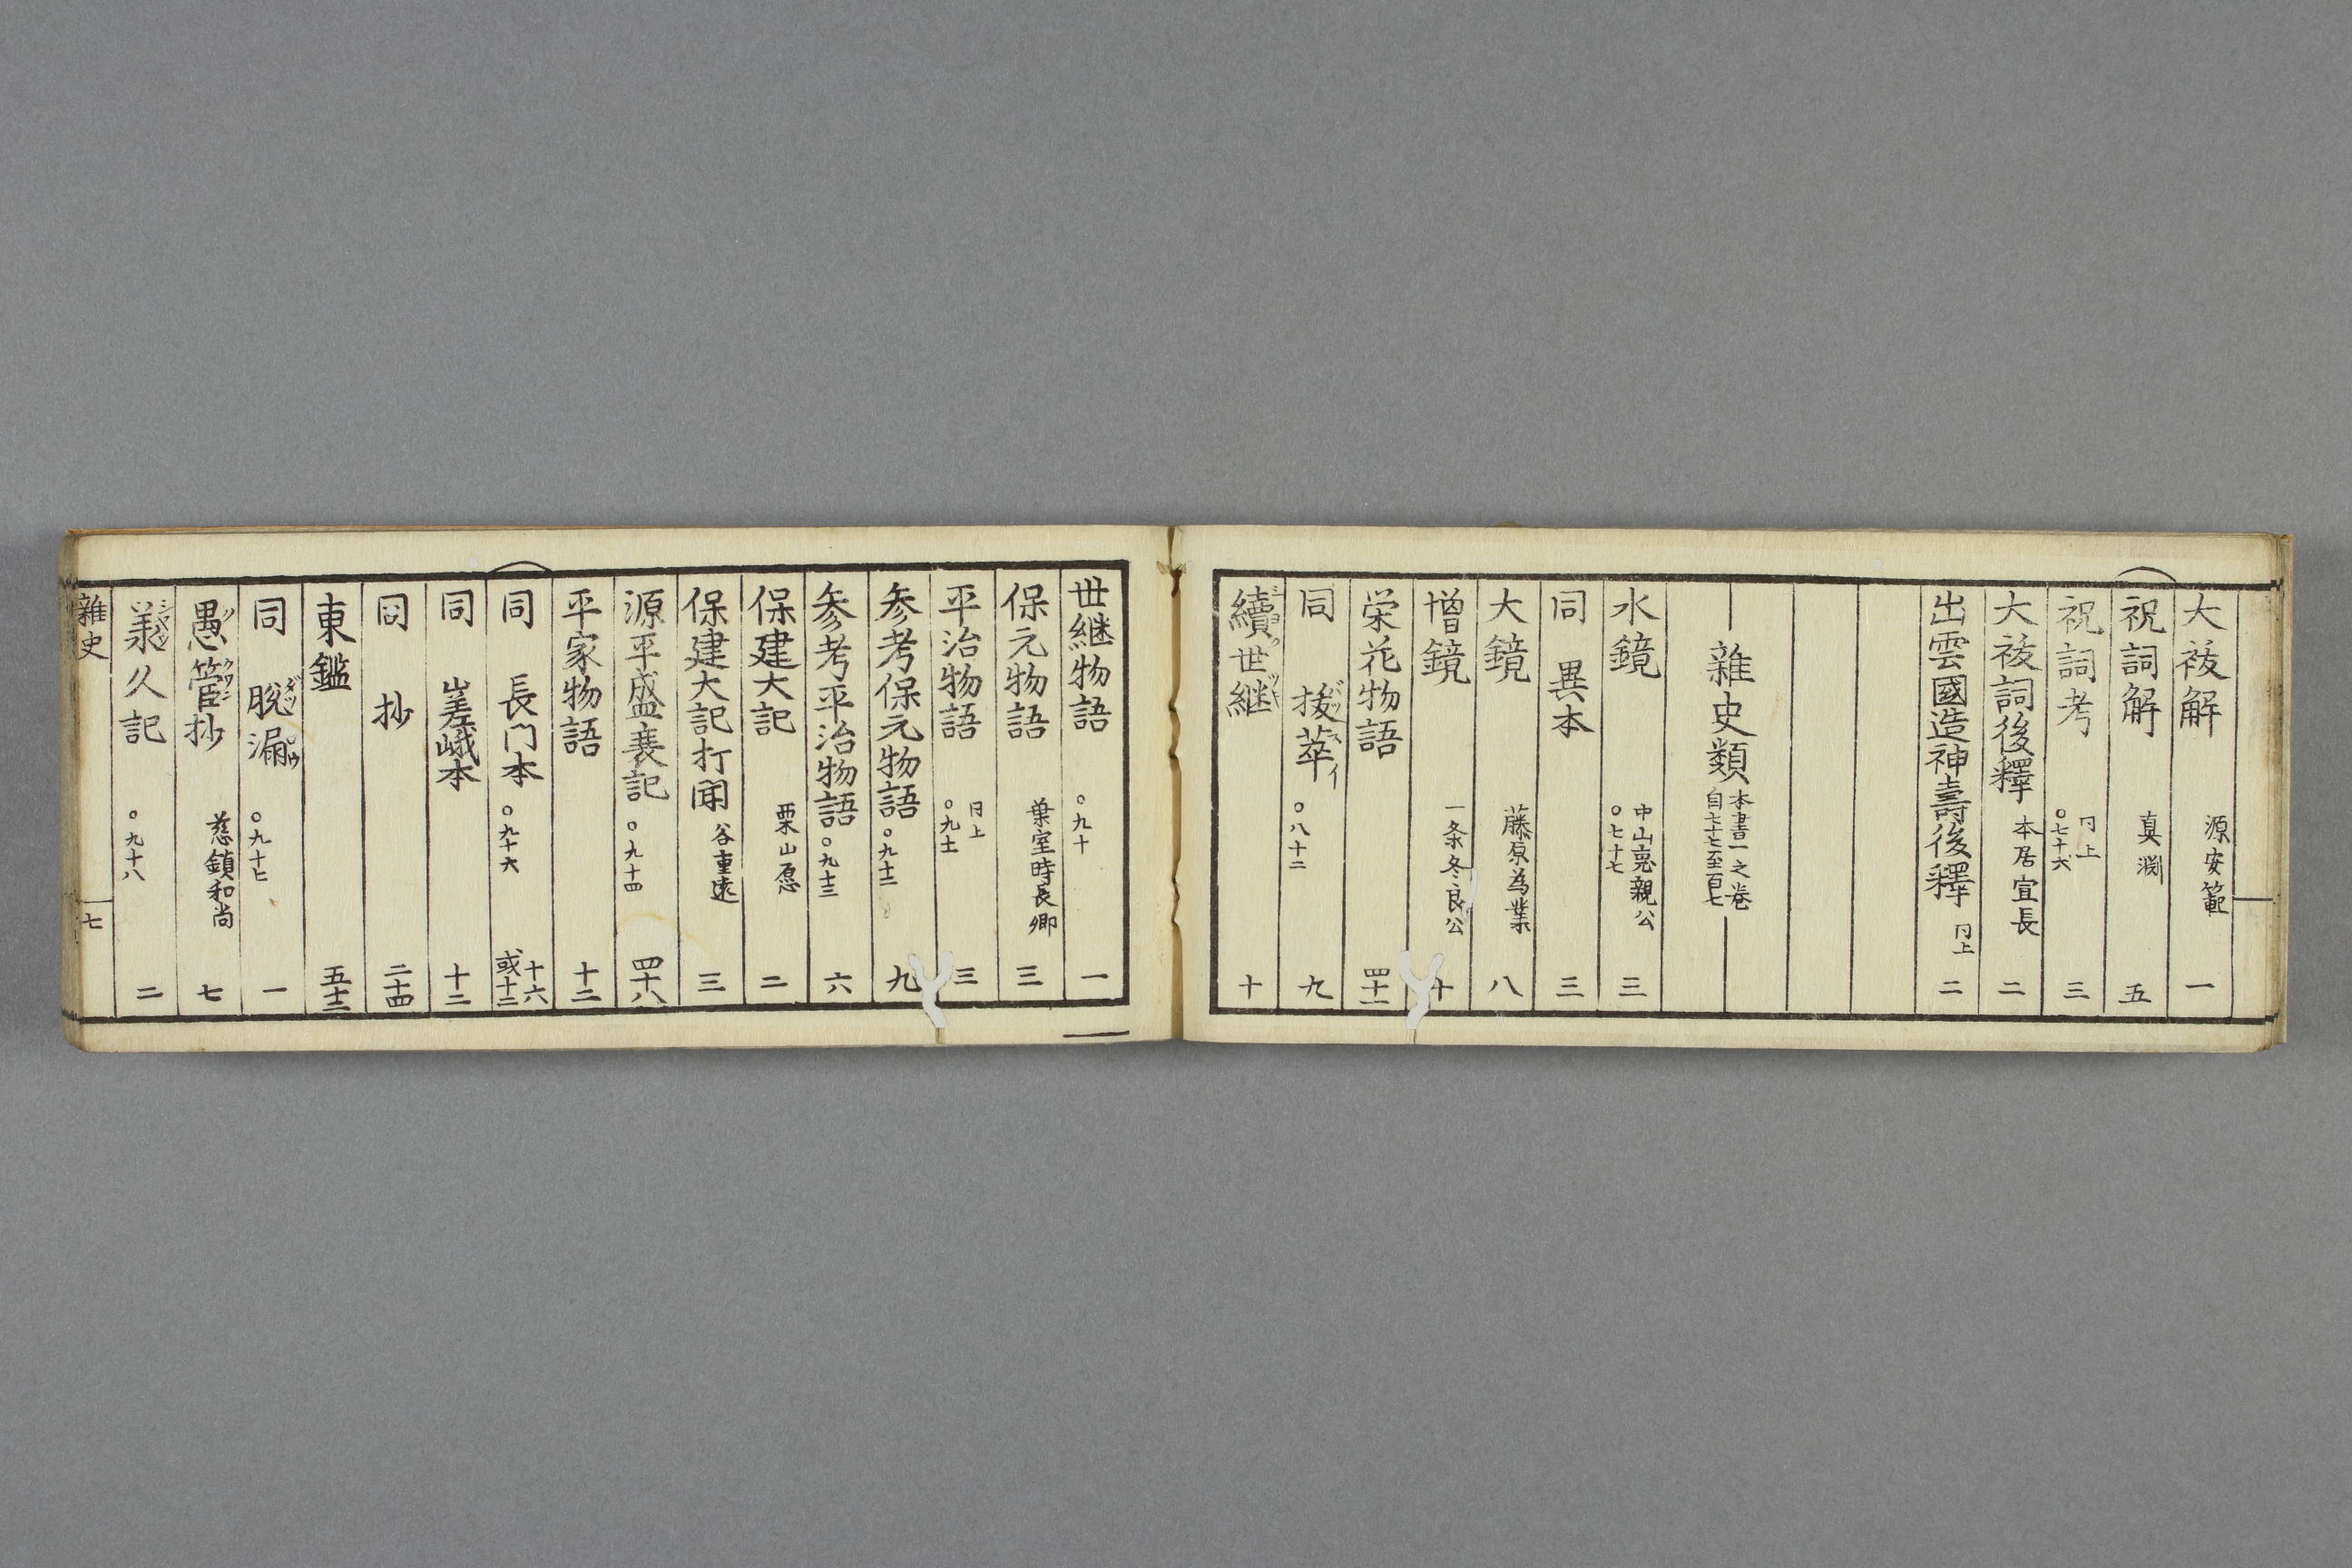 大祓解 源安範 一
祝詞解 真渕 五
祝詞考 仝上 〇七十六 三
大祓詞後釋 本居宣長 二
出雲國造神壽後釋 仝上 二
雜史類 本書一之巻 自七十七至百七
水鏡 中山忠親公 〇七十七 三
同 異本 三
大鏡 藤原为業 八
増鏡 一条冬良公 十
栄花物語 四十一
同 抜萃 〇八十二 九
續世継 十
世継物語 〇九十 一
保元物語 葉室時長卿 三
平治物語 仝上 〇九十一 三
参考保元物語 〇九十二 九
参考平治物語 〇九十三 六
保建大記 栗山愿 二
保建大記打聞 谷重遠 三
源平盛衰記 〇九十四 四十八
平家物語 十二
同 長门本 〇九十六 十六 或十二
同 嵯峨本 十二
同 抄 二十四
東鑑 五十二
同 脱漏 〇九十七 一
愚管抄 慈鎮和尚 七
承久記 〇九十八 二
雜史 七